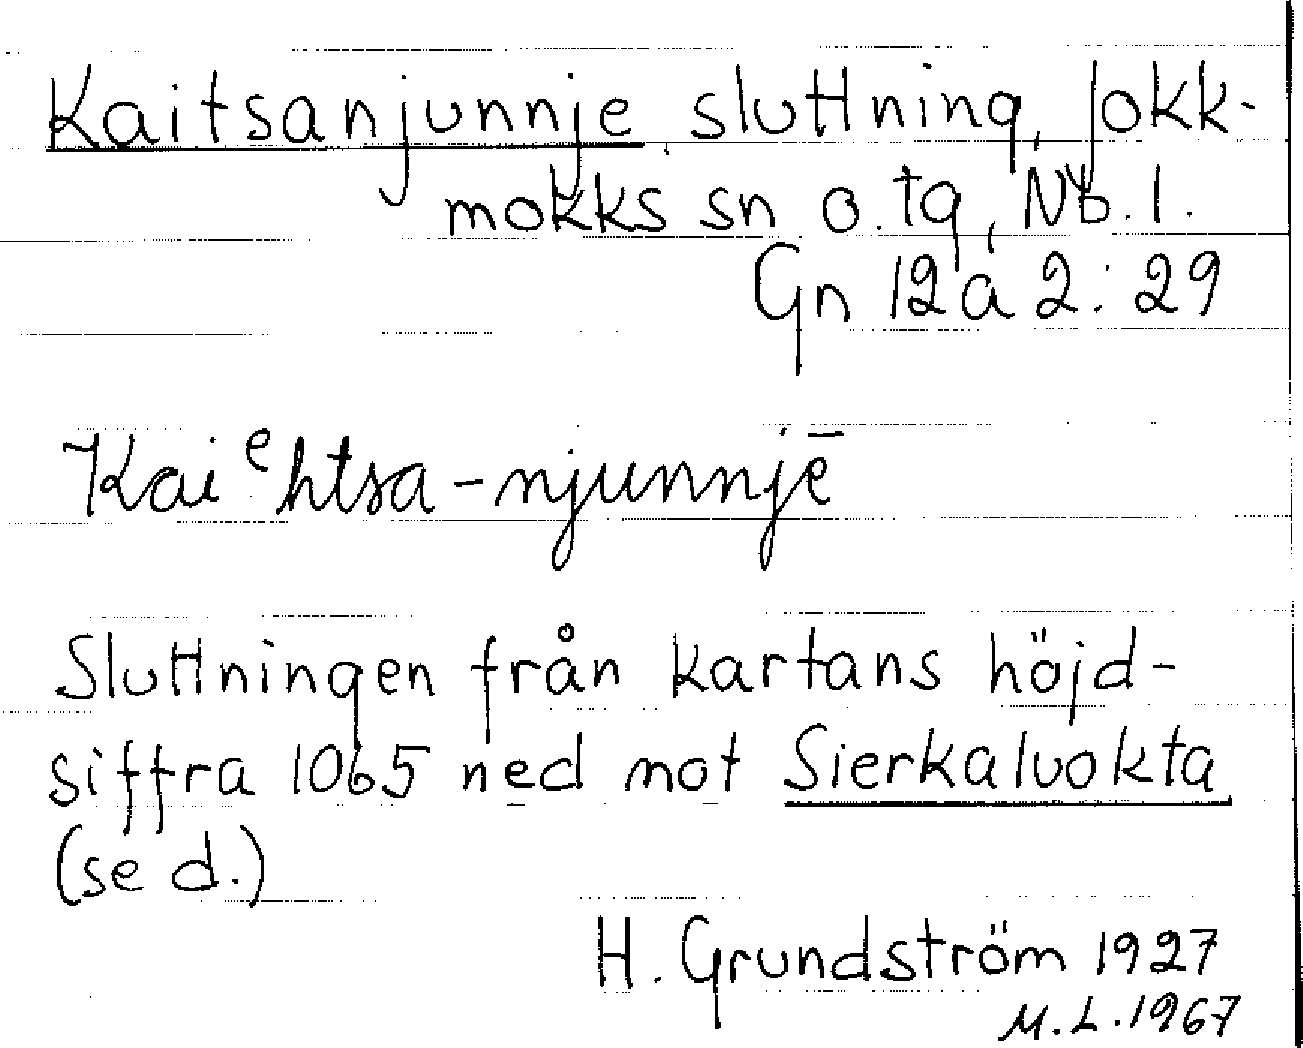 Kaitsanjunnje sluttning, Jokk-
mokks sn o. tg, Nb. l.
Gn 12 a 2: 29
Kaiᵉhtsa-njunnjē
Sluttningen från kartans höjd-
siffra 1065 ned mot Sierkaluokta
(se d.)
H. Grundström 1927
M. L. 1967